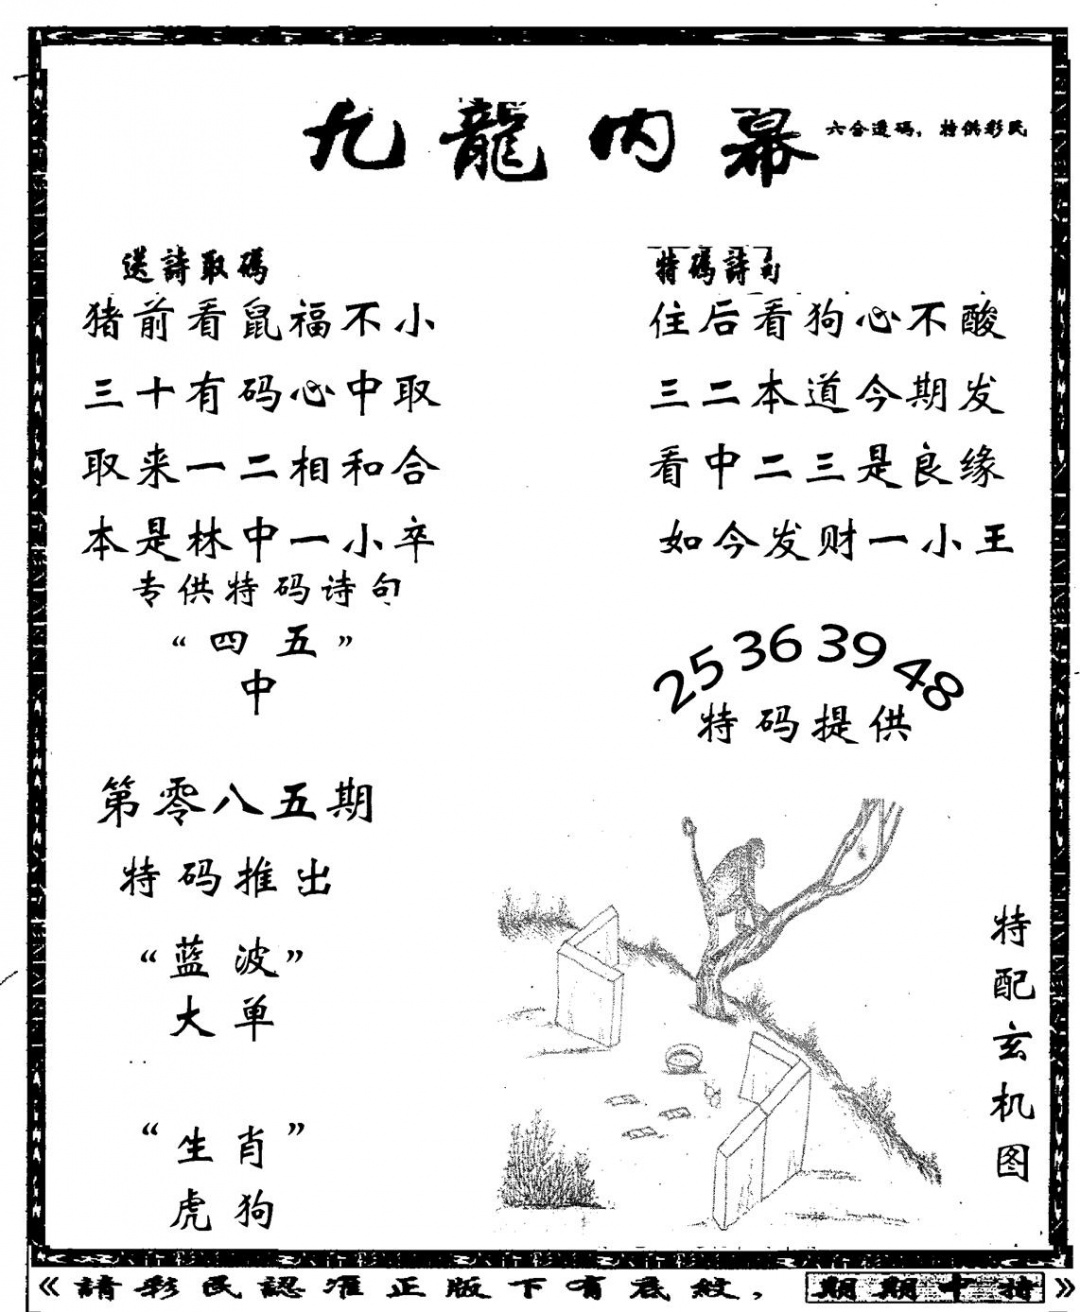 九龍内幕
六合透碼，特供彩民
送詩取碼
猪前看鼠福不小
三十有码心中取
取来一二相和合
本是林中一小卒
专供特码诗句
“四五”
中
第零八五期
特码推出
“蓝波”
大单
“生肖”
虎狗
特碼詩句
住后看狗心不酸
三二本道今期发
看中二三是良缘
如今发财一小王
25 36 39 48
特码提供
特配玄机图
《請彩民認准正版下有底紋，期期中特》